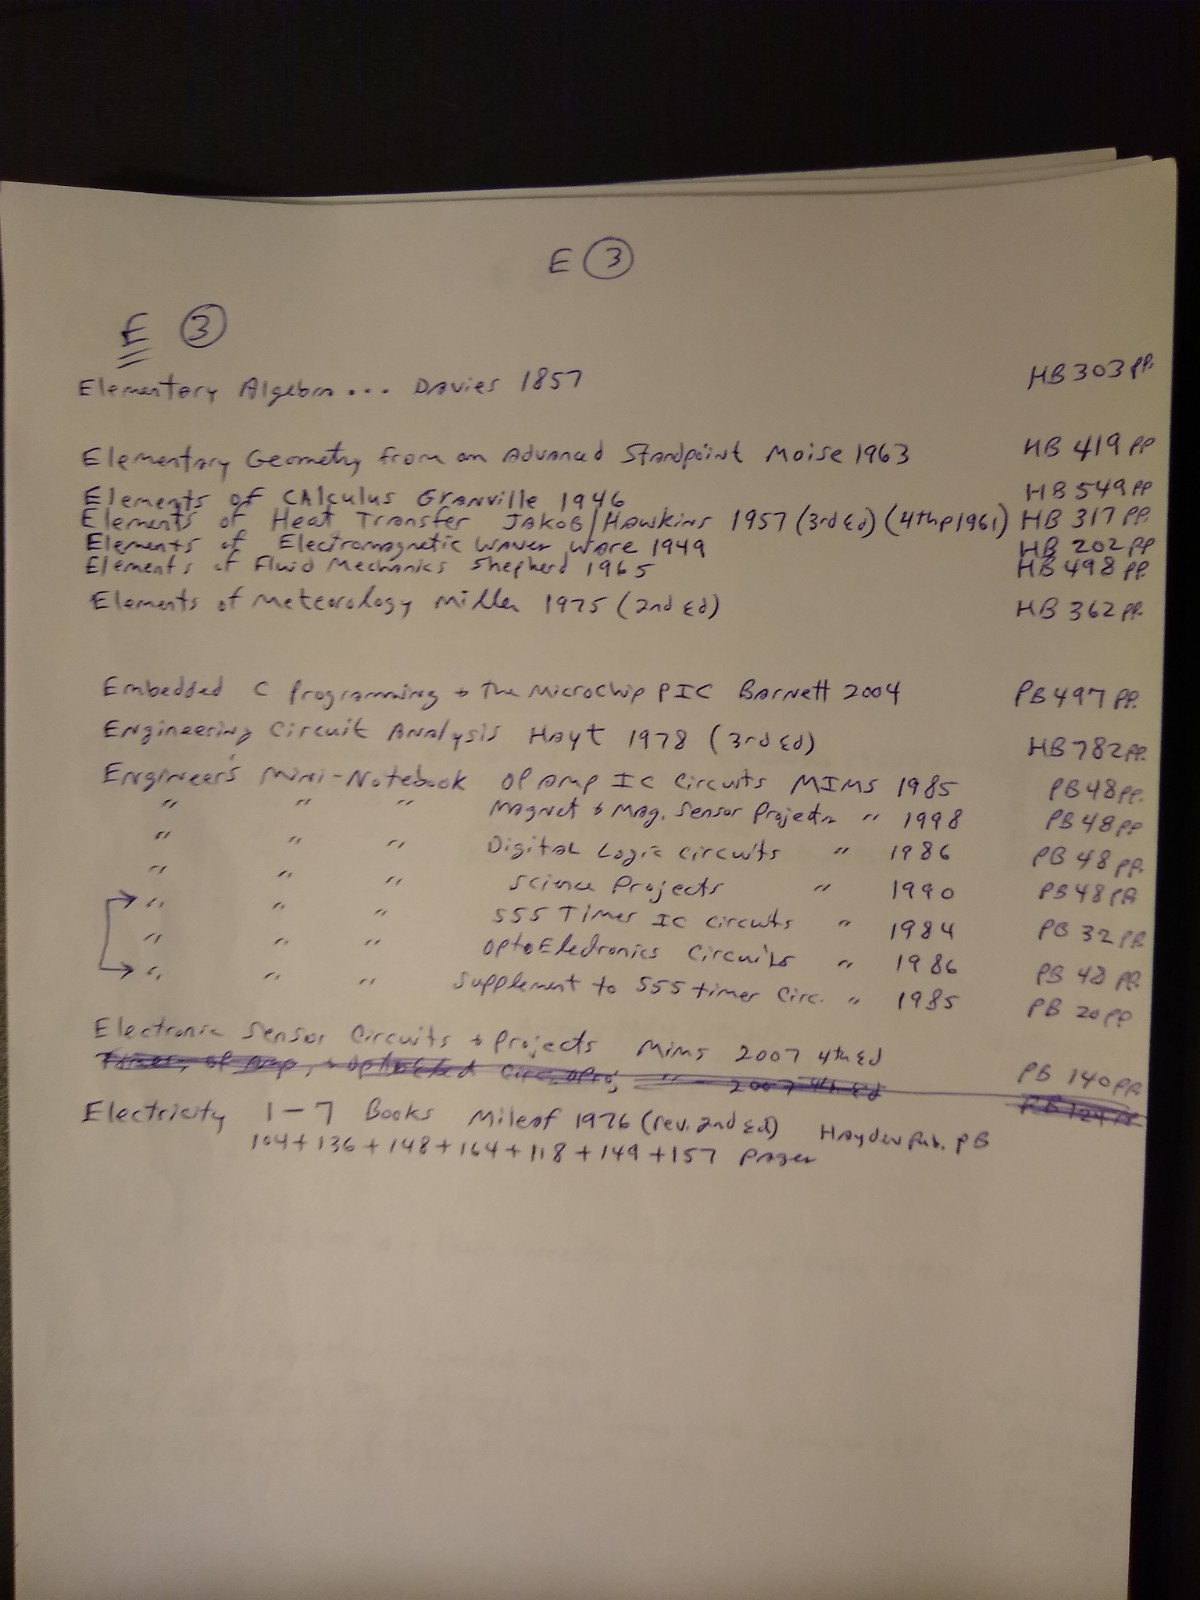 E ③
E ③
Elementary Algebra... Davies 1857 HB 303 pp.
Elementary Geometry from an Advanced Standpoint Moise 1963 HB 419 pp
Elements of Calculus Granville 1946 HB 549 pp
Elements of Heat Transfer Jakob/Hawkins 1957 (3rd Ed) (4th p 1961) HB 317 pp.
Elements of Electromagnetic Waves Ware 1949 HB 202 pp
Elements of Fluid Mechanics Shepherd 1965 HB 498 pp.
Elements of Meteorology Miller 1975 (2nd Ed) HB 362 pp.
Embedded C Programming & The Microchip PIC Barnett 2004 PB 497 pp.
Engineering Circuit Analysis Hayt 1978 (3rd Ed) HB 782 pp.
Engineer's Mini-Notebook Op Amp IC Circuits MIMS 1985 PB 48 pp.
" " " Magnet & Mag. Sensor Projects " 1998 PB 48 pp
" " " Digital Logic Circuits " 1986 PB 48 pp.
" " " Science Projects " 1990 PB 48 pp
" " " 555 Timer IC Circuits " 1984 PB 32 pp.
" " " OptoElectronics Circuits " 1986 PB 48 pp.
" " " Supplement to 555 timer Circ. " 1985 PB 20 pp
Electronic Sensor Circuits & Projects Mims 2007 4th Ed PB 140 pp
Timer, Op Amp, & Optoelect Circ & Proj " 2007 4th Ed PB
Electricity 1-7 Books Mileaf 1976 (rev. 2nd Ed) Hayden Pub. PB
104+136+148+164+118+149+157 pages